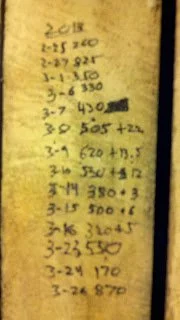 2018
2-25 260
2-27 825
3-1 350
3-6 330
3-7 430
3-8 505 +22
3-9 620 +13.5
3-10 530 + 12
3-14 380 + 3
3-15 500 + 6
3-16 320 + 5
3-23 550
3-24 170
3-26 870